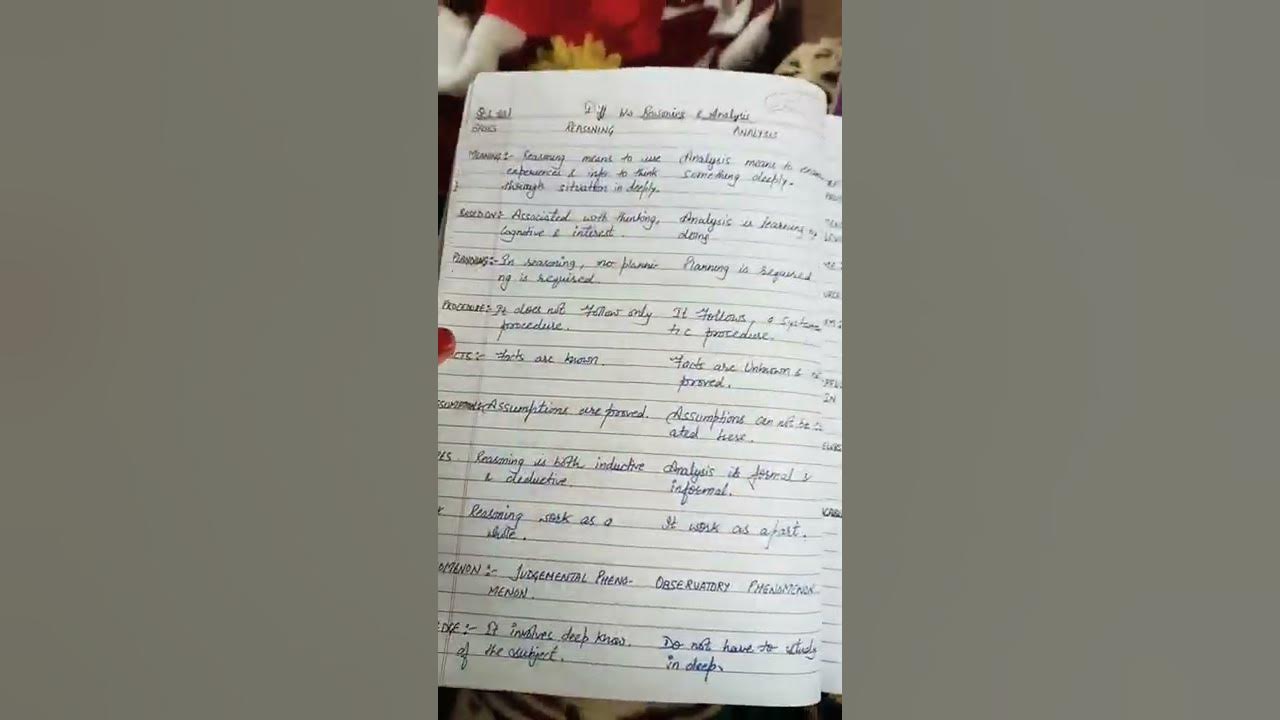 Diff b/w Reasoning & Analysis
BASIS REASONING ANALYSIS
MEANING:- Reasoning means to use Analysis means to
experiences & info to think something deeply.
through situation in deeply.
BASED ON:- Associated with thinking, Analysis is learning by
Cognitive & interest. doing
PLANNING:- In reasoning, no planni- Planning is required
ng is required.
PROCEDURE:- It does not follow only It follows, a systema
procedure. tic procedure.
CTS:- Facts are known. Facts are unknown &
proved.
Assumptions are proved. Assumptions can not be
ated here.
Reasoning is both inductive Analysis is formal &
& deductive. informal.
Reasoning work as a It work as apart.
OMENON:- JUDGEMENTAL PHENO- OBSERVATORY PHENOMENON.
MENON.
EDGE:- It involves deep know. Do not have to study
of the subject. in deep.